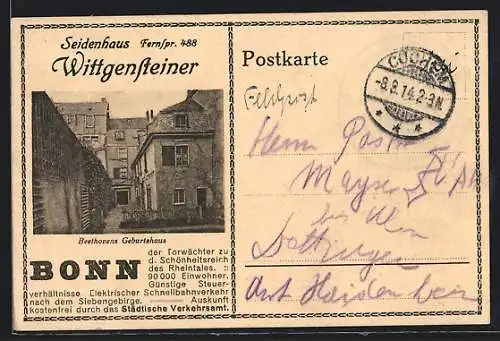 Seidenhaus Fernspr. 488
Wittgensteiner
Beethovens Geburtshaus
BONN
der Torwächter zu
d. Schönheitsreich
des Rheintales. ::
90 000 Einwohner.
Günstige Steuer-
verhältnisse Elektrischer Schnellbahnverkehr
nach dem Siebengebirge. Auskunft
kostenfrei durch das Städtische Verkehrsamt.
Postkarte
Feldpost
-8.9.14. 2-3N.
Herrn
Mayser
bei
Amt Heidenheim